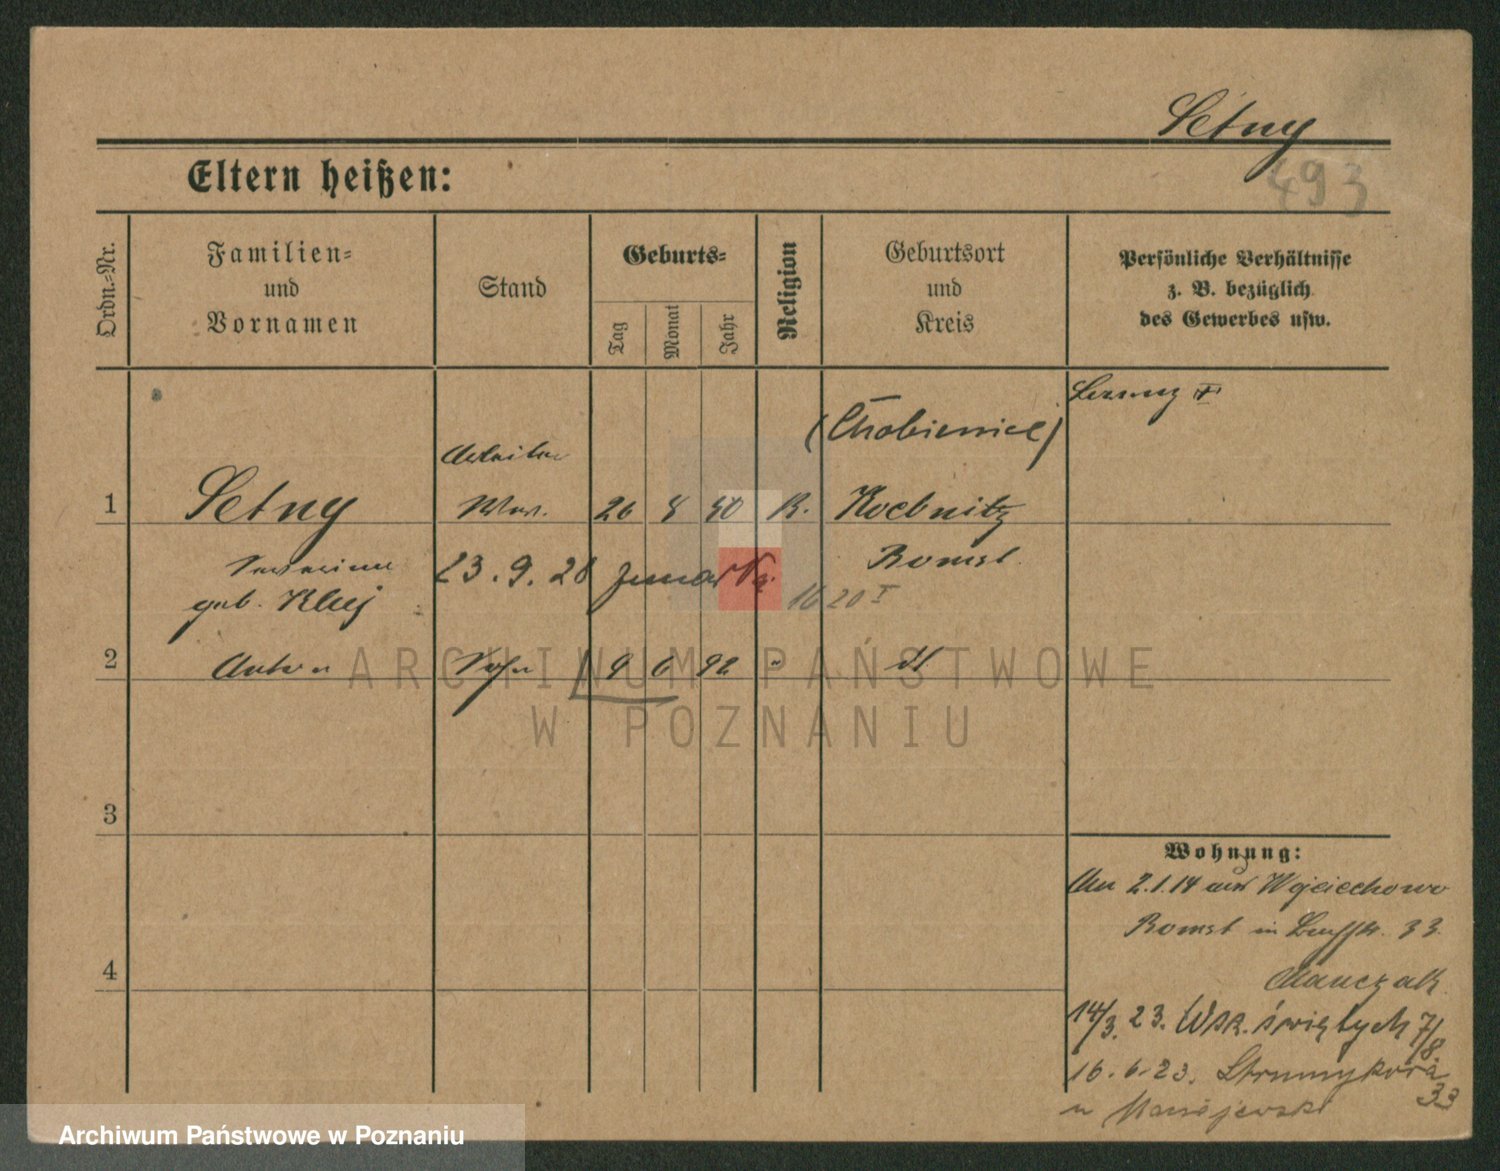 Setny
493
Eltern heißen:
Ordn.-Nr.
Familien- und Vornamen
Stand
Geburts-
Tag
Monat
Jahr
Religion
Geburtsort und Kreis
Persönliche Verhältnisse
z. B. bezüglich
des Gewerbes usw.
(Chobienice)
Arbeiter
1 Setny Wwe. 26 8 40 K. Koebnitz
Bomst
geb. Kluj 23.9.28 zmarła
16 20 I
2 Anton Sohn 9 6 92 " dt
3
4
Wohnung:
Am 2.1.14 aus Wojciechowo
Bomst in 33
Manczak
14/3. 23. Wsz. świętych 7/8.
16.6.23. Strumykowa 33
u Maciejewski
ARCHIWUM PAŃSTWOWE
W POZNANIU
Archiwum Państwowe w Poznaniu